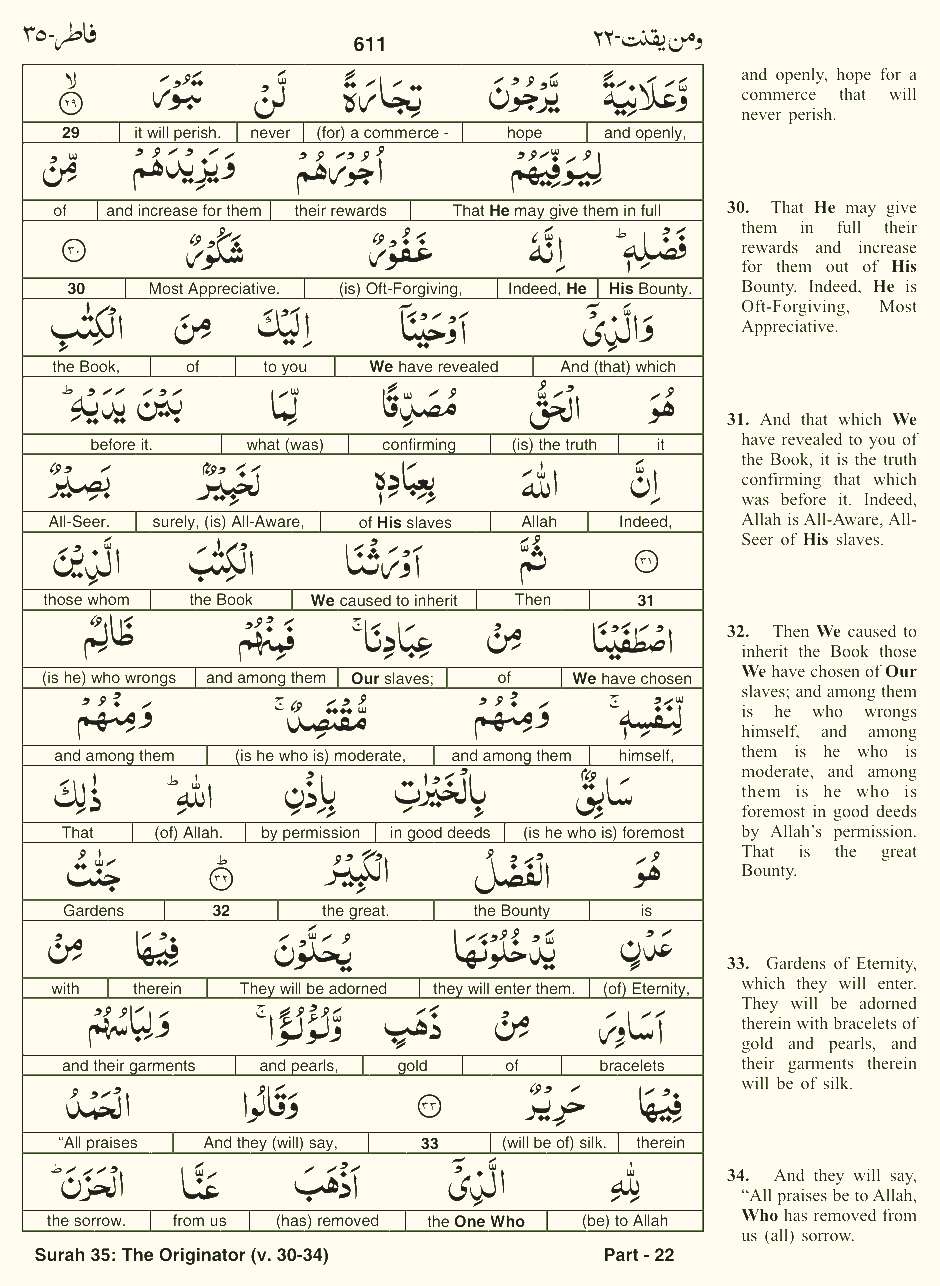 فاطر-٣٥ 611 ومن يقنت-٢٢
وَّعَلَانِيَةً يَّرْجُوْنَ تِجَارَةً لَّنْ تَبُوْرَ ۙ ﴿٢٩﴾
29 | it will perish. | never | (for) a commerce - | hope | and openly,
لِيُوَفِّيَهُمْ اُجُوْرَهُمْ وَيَزِيْدَهُمْ مِّنْ
of | and increase for them | their rewards | That He may give them in full
فَضْلِهٖ ؕ اِنَّهٗ غَفُوْرٌ شَكُوْرٌ ﴿٣٠﴾
30 | Most Appreciative. | (is) Oft-Forgiving, | Indeed, He | His Bounty.
وَالَّذِيْۤ اَوْحَيْنَاۤ اِلَيْكَ مِنَ الْكِتٰبِ
the Book, | of | to you | We have revealed | And (that) which
هُوَ الْحَقُّ مُصَدِّقًا لِّمَا بَيْنَ يَدَيْهِ ؕ
before it. | what (was) | confirming | (is) the truth | it
اِنَّ اللّٰهَ بِعِبَادِهٖ لَخَبِيْرٌۢ بَصِيْرٌ
All-Seer. | surely, (is) All-Aware, | of His slaves | Allah | Indeed,
﴿٣١﴾ ثُمَّ اَوْرَثْنَا الْكِتٰبَ الَّذِيْنَ
those whom | the Book | We caused to inherit | Then | 31
اصْطَفَيْنَا مِنْ عِبَادِنَا ۚ فَمِنْهُمْ ظَالِمٌ
(is he) who wrongs | and among them | Our slaves; | of | We have chosen
لِّنَفْسِهٖ ۚ وَمِنْهُمْ مُّقْتَصِدٌ ۚ وَمِنْهُمْ
and among them | (is he who is) moderate, | and among them | himself,
سَابِقٌۢ بِالْخَيْرٰتِ بِاِذْنِ اللّٰهِ ؕ ذٰلِكَ
That | (of) Allah. | by permission | in good deeds | (is he who is) foremost
هُوَ الْفَضْلُ الْكَبِيْرُ ؕ ﴿٣٢﴾ جَنّٰتُ
Gardens | 32 | the great. | the Bounty | is
عَدْنٍ يَّدْخُلُوْنَهَا يُحَلَّوْنَ فِيْهَا مِنْ
with | therein | They will be adorned | they will enter them. | (of) Eternity,
اَسَاوِرَ مِنْ ذَهَبٍ وَّلُؤْلُؤًا ۚ وَلِبَاسُهُمْ
and their garments | and pearls, | gold | of | bracelets
فِيْهَا حَرِيْرٌ ﴿٣٣﴾ وَقَالُوا الْحَمْدُ
“All praises | And they (will) say, | 33 | (will be of) silk. | therein
لِلّٰهِ الَّذِيْۤ اَذْهَبَ عَنَّا الْحَزَنَ ؕ
the sorrow. | from us | (has) removed | the One Who | (be) to Allah
Surah 35: The Originator (v. 30-34) Part - 22
and openly, hope for a
commerce that will
never perish.
30. That He may give
them in full their
rewards and increase
for them out of His
Bounty. Indeed, He is
Oft-Forgiving, Most
Appreciative.
31. And that which We
have revealed to you of
the Book, it is the truth
confirming that which
was before it. Indeed,
Allah is All-Aware, All-
Seer of His slaves.
32. Then We caused to
inherit the Book those
We have chosen of Our
slaves; and among them
is he who wrongs
himself, and among
them is he who is
moderate, and among
them is he who is
foremost in good deeds
by Allah’s permission.
That is the great
Bounty.
33. Gardens of Eternity,
which they will enter.
They will be adorned
therein with bracelets of
gold and pearls, and
their garments therein
will be of silk.
34. And they will say,
“All praises be to Allah,
Who has removed from
us (all) sorrow.